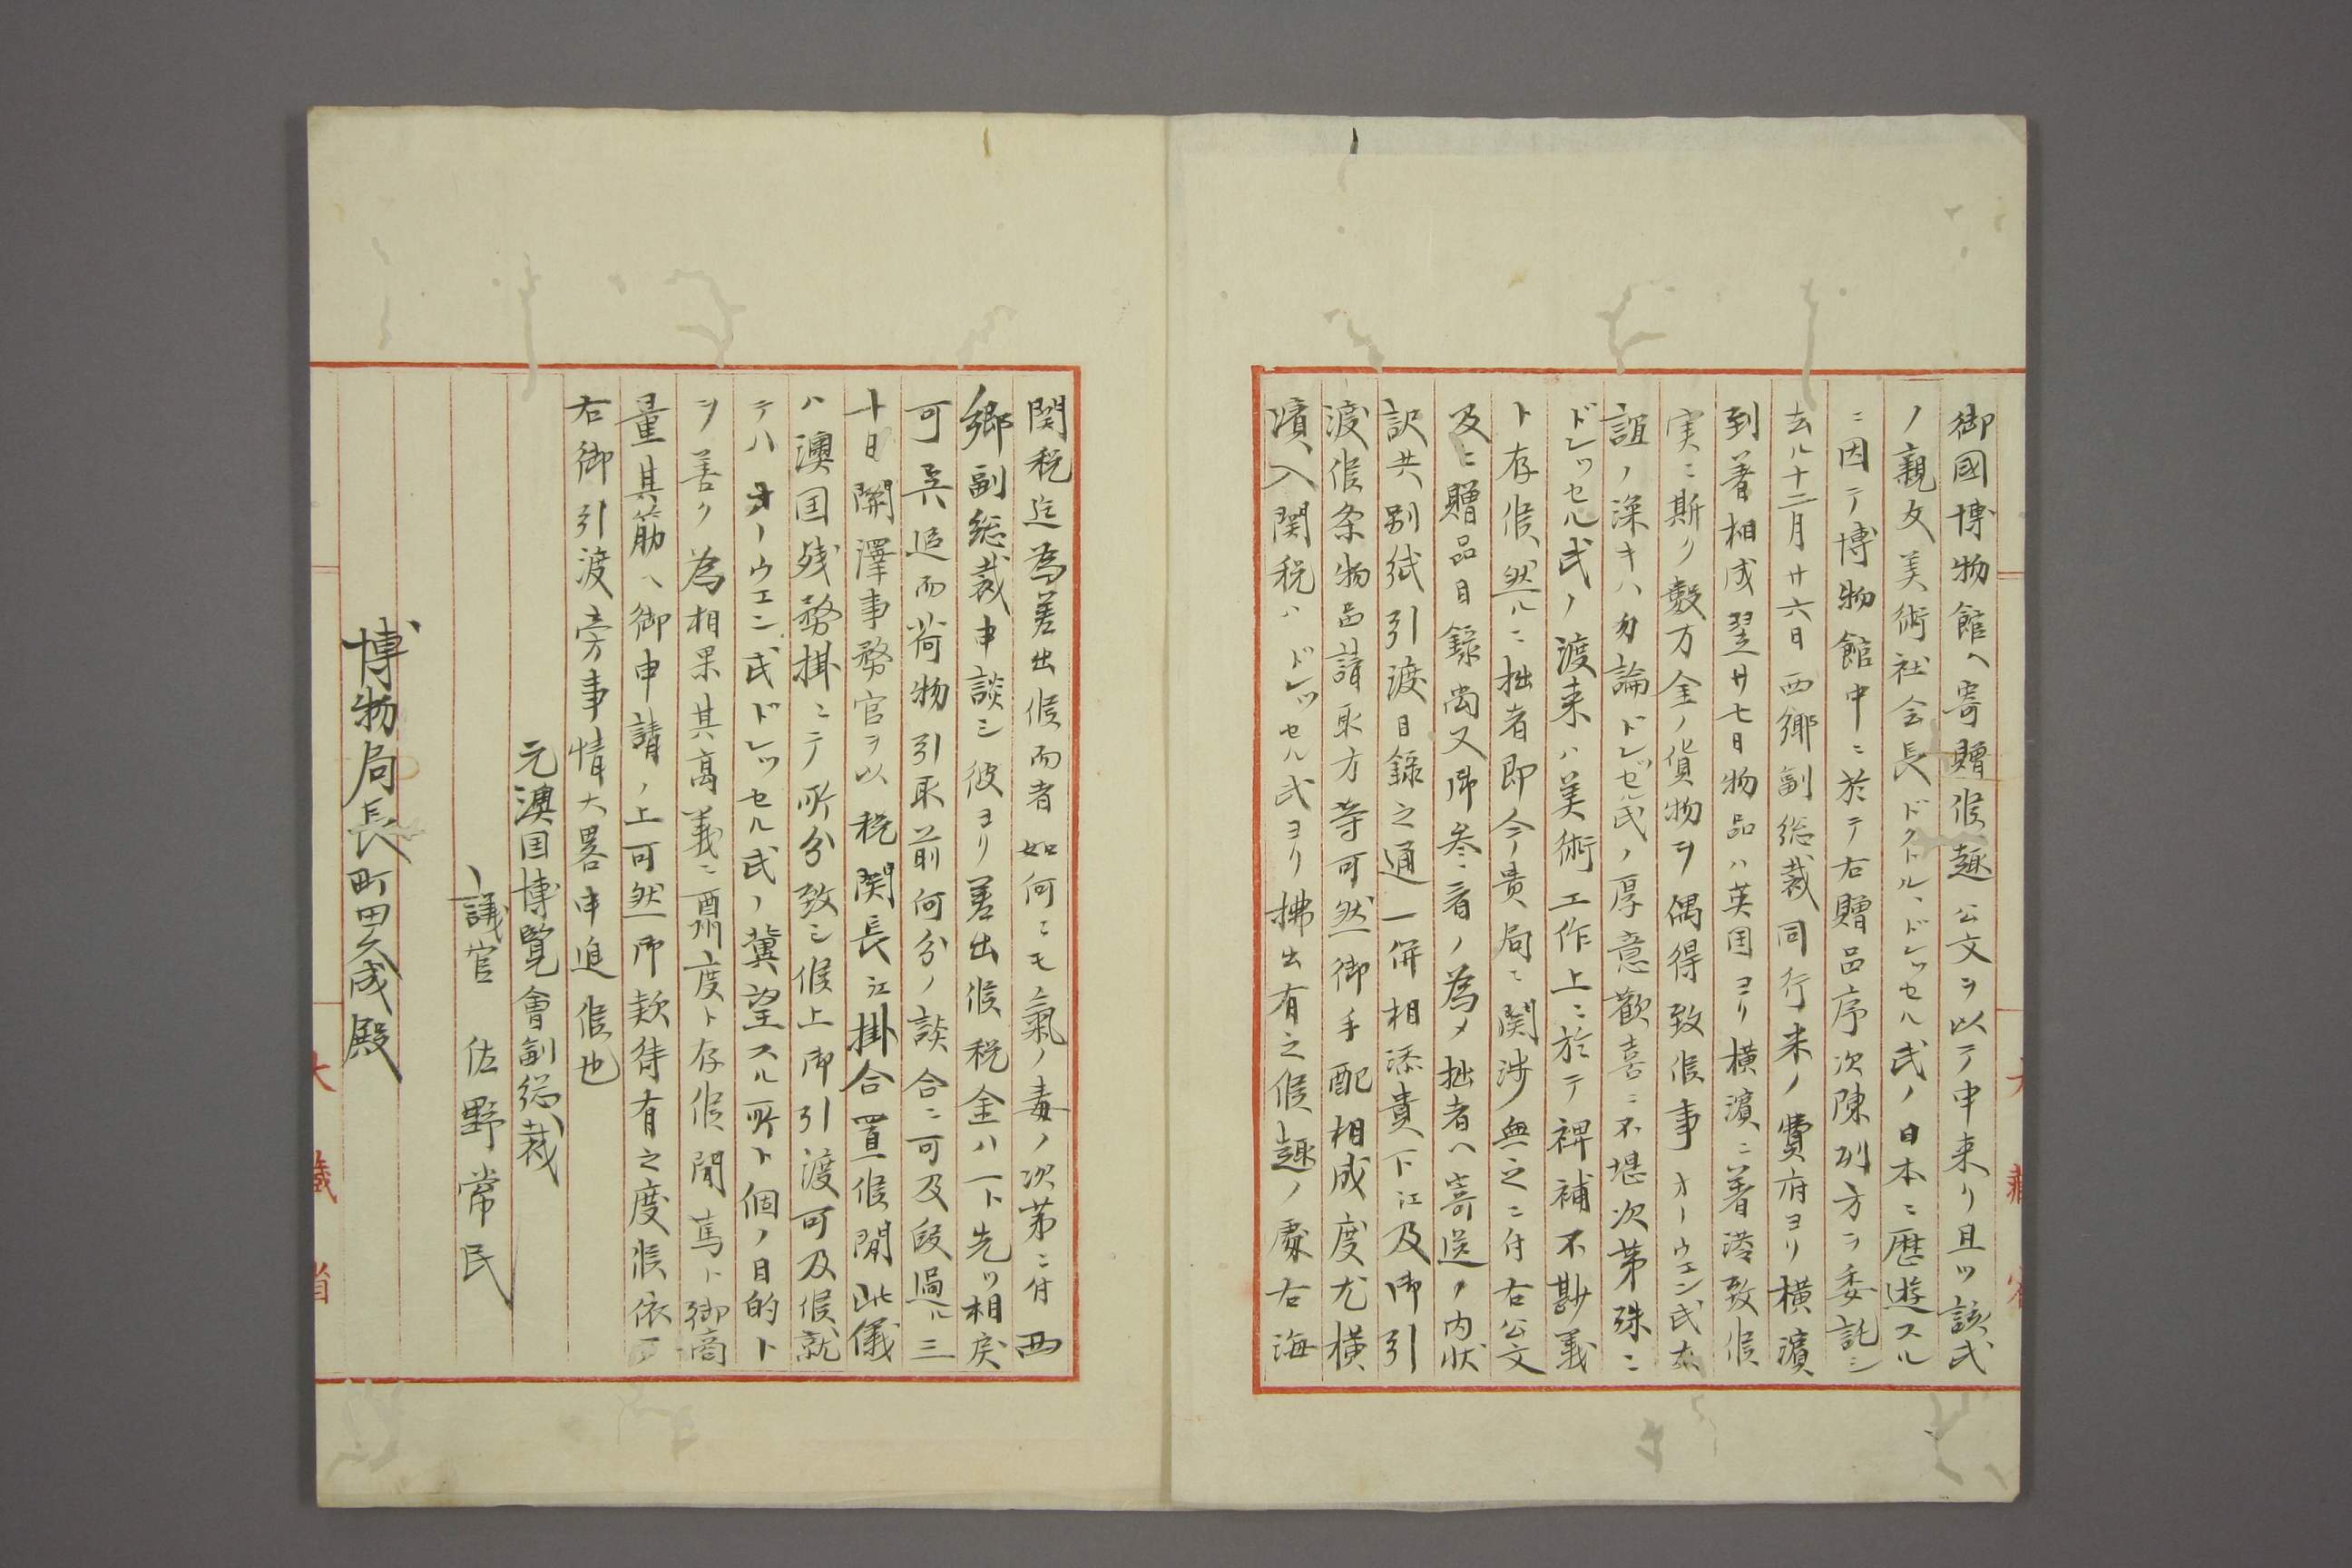 御國博物館ヘ寄贈候趣公文ヲ以テ申来リ且ツ該氏
ノ親友美術社会長ドクトル、ドレッセル氏ノ日本ニ歴遊スル
ニ因テ博物館中ニ於テ右贈品序次陳列方ヲ委託シ
去ル十二月廿六日西郷副総裁同行米ノ費府ヨリ横濵
到着相成翌廿七日物品ハ英国ヨリ横濵ニ着港致候
実ニ斯ク数万金ノ貨物ヲ偶得致候事オーウエン氏友
誼ノ深キハ勿論ドレゼル氏ノ厚意歓喜ニ不堪次第殊ニ
ドレッセル氏ノ渡来ハ美術工作上ニ於テ裨補不尠義
ト存候然ルニ拙者即今貴局ニ関渉無之ニ付右公文
及ニ贈品目録尚又御参看ノ為メ拙者ヘ寄送ノ内状
訳共別紙引渡目録之通一併相添貴下江及御引
渡候条物品請取方等可然御手配相成度尤横
濵入関税ハドレッセル氏ヨリ拂出有之候趣ノ處右海
関税迄為差出候而者如何ニモ氣ノ毒ノ次第ニ付西
郷副総裁申談シ彼ヨリ差出候税金ハ一ト先ツ相戻
可呉追而荷物引取前何分ノ談合ニ可及段過ル三
十日関澤事務官ヲ以税関長江掛合置候間此儀
ハ澳国残務掛ニテ所分致シ候上御引渡可及候就
テハオーウエン氏ドレッセル氏ノ冀望スル所ト個ノ目的ト
ヲ善ク為相果其高義ニ酬度ト存候間篤ト御商
量其筋ヘ御申請ノ上可然御款待有之度候依
右御引渡旁事情大畧申進候也
元澳国博覧會副総裁
議官 佐野常民
博物局長町田久成殿
大藏省